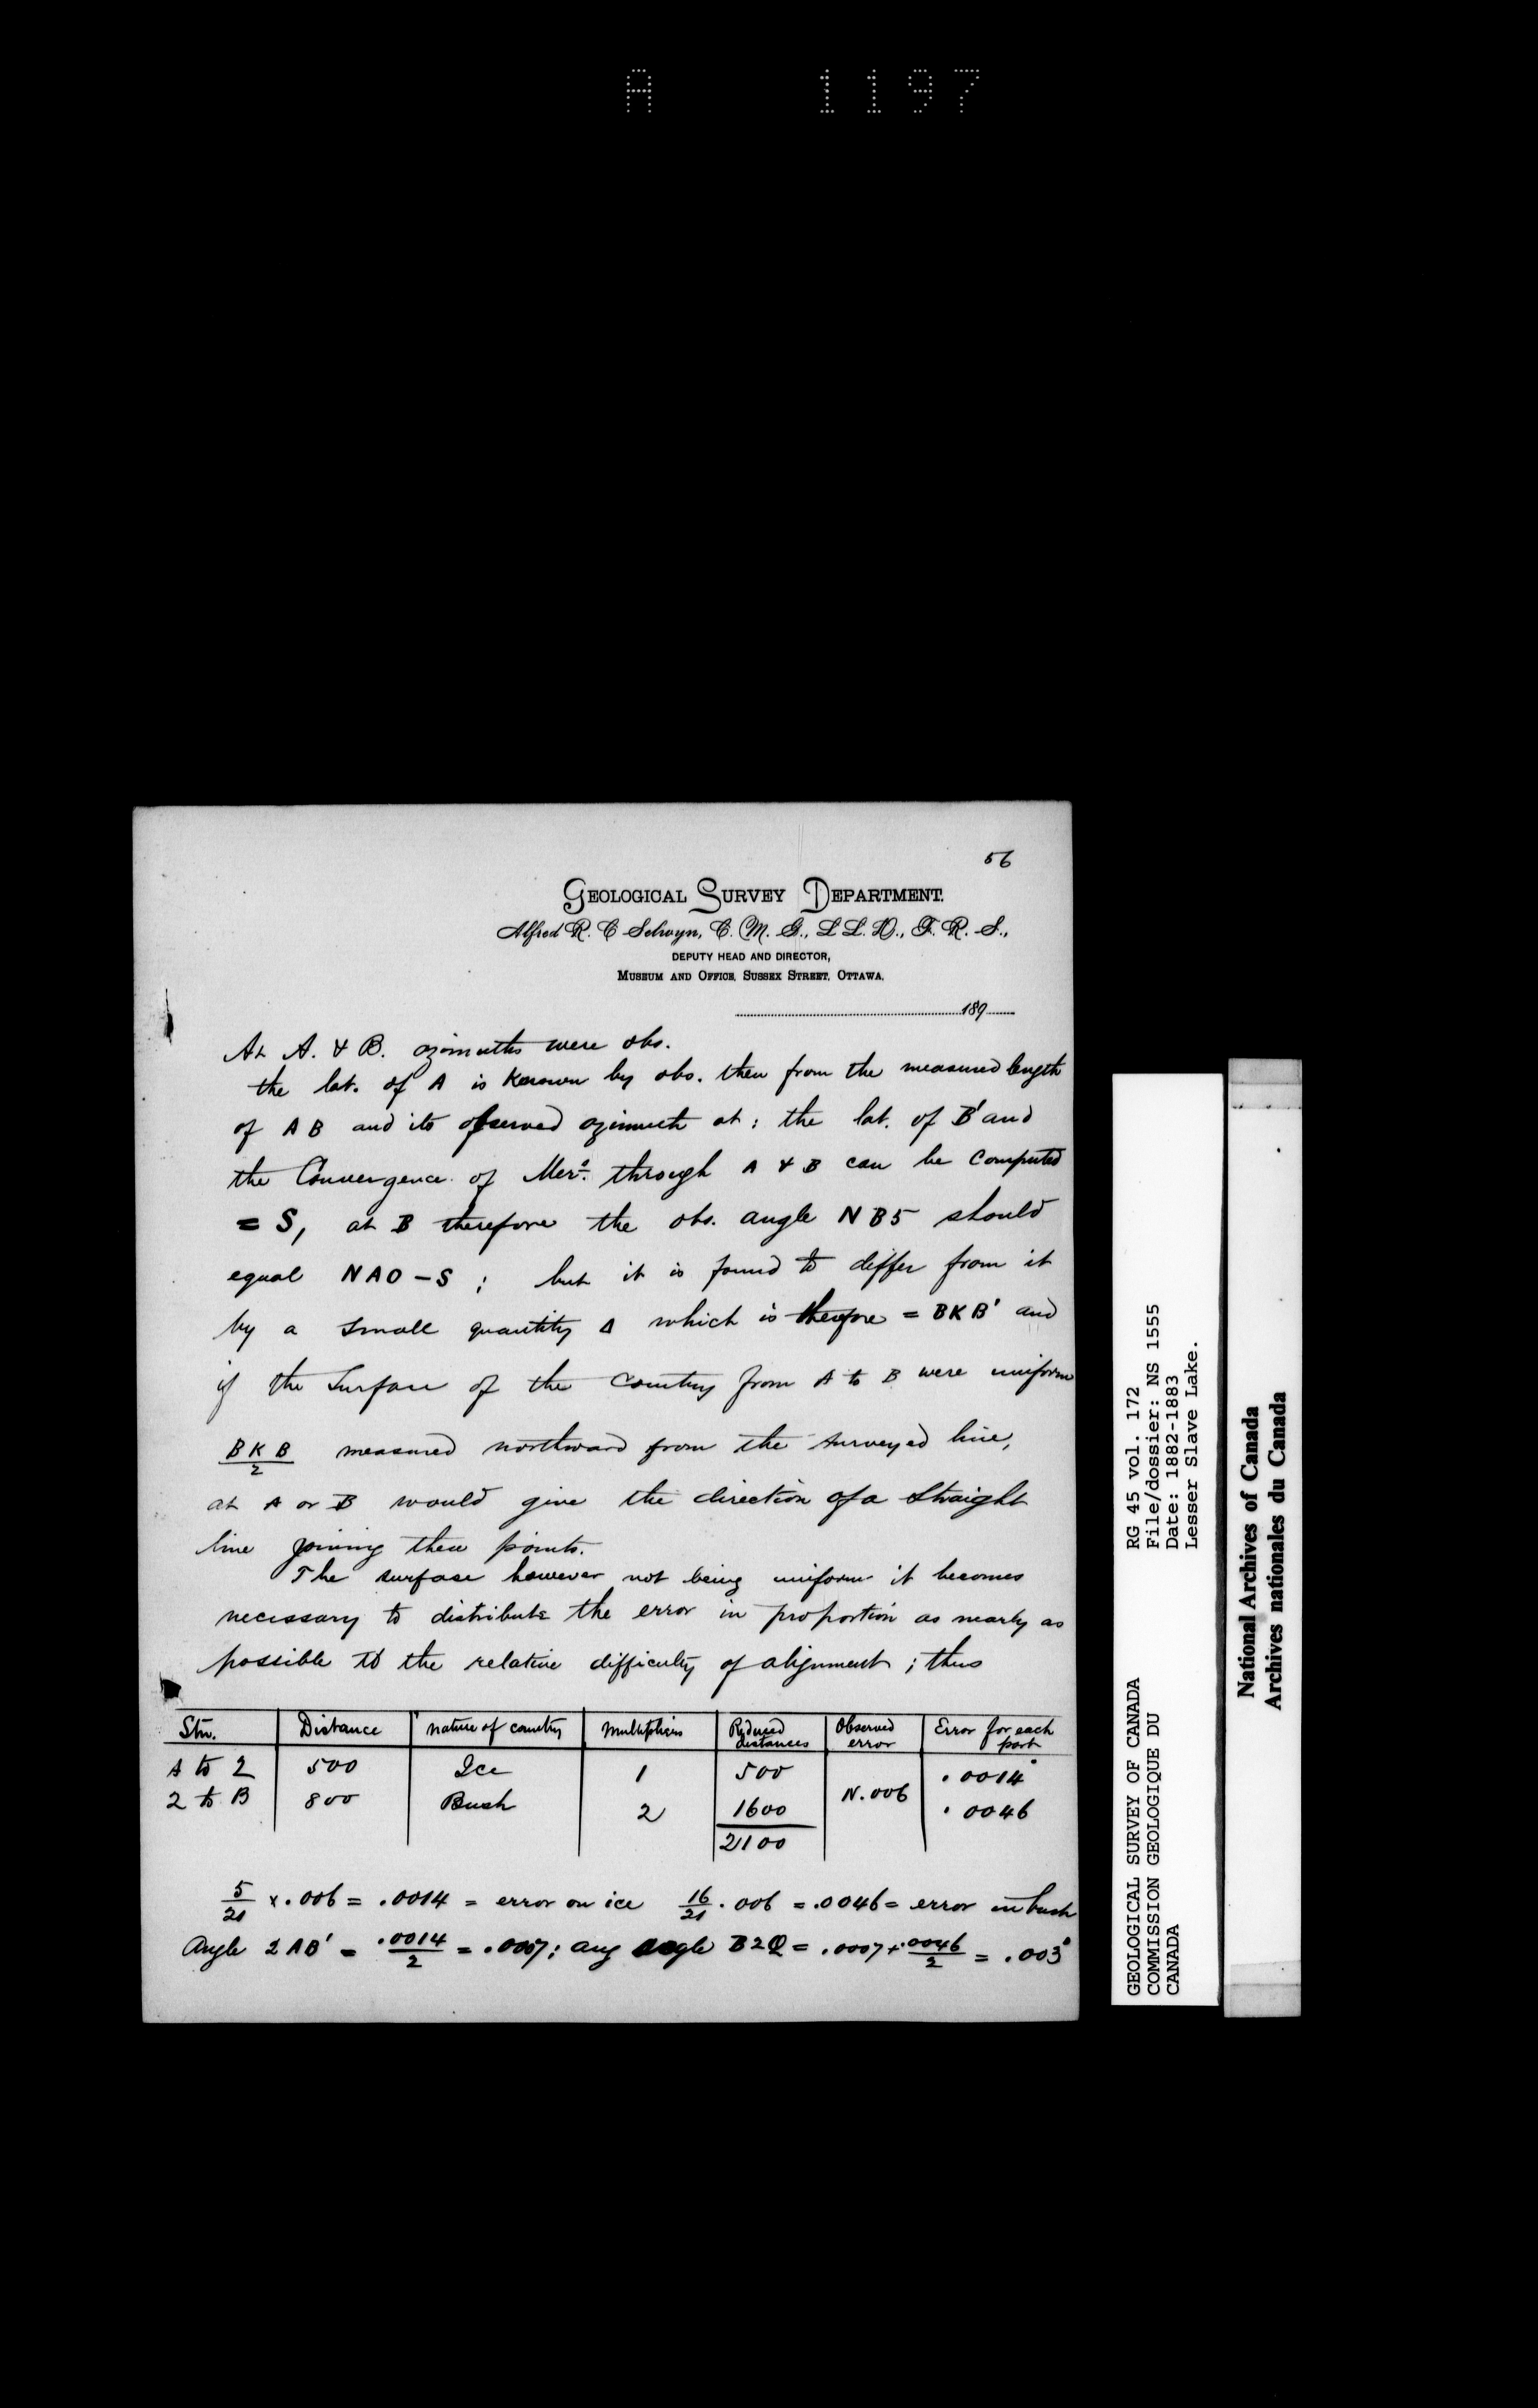 A 1197
56
GEOLOGICAL SURVEY DEPARTMENT.
Alfred R. C Selwyn, C. M. G., L L. D., F. R. S.,
DEPUTY HEAD AND DIRECTOR,
MUSEUM AND OFFICE, SUSSEX STREET, OTTAWA,
189
At A. & B. azimuths were obs.
the lat. of A is known by obs. then from the measured length
of A B and its observed azimuth at: the lat. of B' and
the Convergence of Mers. through A & B can be computed
= S, at B therefore the obs. angle N B 5 should
equal N A O - S ; but it is found to differ from it
by a small quantity Δ which is therefore = B K B' and
if the surface of the country from A to B were uniform
B K B/2 measured northward from the surveyed line,
at A or B would give the direction of a straight
line joining these points.
The surface however not being uniform it becomes
necessary to distribute the error in proportion as nearly as
possible to the relative difficulty of alignment ; thus
Stn. Distance nature of country Multipliers Reduced distances Observed error Error for each part
A to 2 500 Ice 1 500 N. 006 .0014°
2 to B 800 Bush 2 1600 .0046
2100
5/21 x .006 = .0014 = error on ice 16/21 . 006 = .0046 = error in bush
Angle 2 A B' = .0014/2 = .0007; ang angle B 2 Q = .0007 + .0046/2 = .003°
GEOLOGICAL SURVEY OF CANADA RG 45 vol. 172
COMMISSION GEOLOGIQUE DU File/dossier: NS 1555
CANADA Date: 1882-1883
Lesser Slave Lake.
National Archives of Canada
Archives nationales du Canada